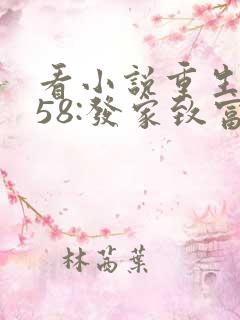 看小說重生
58:發家致富
林芮葉